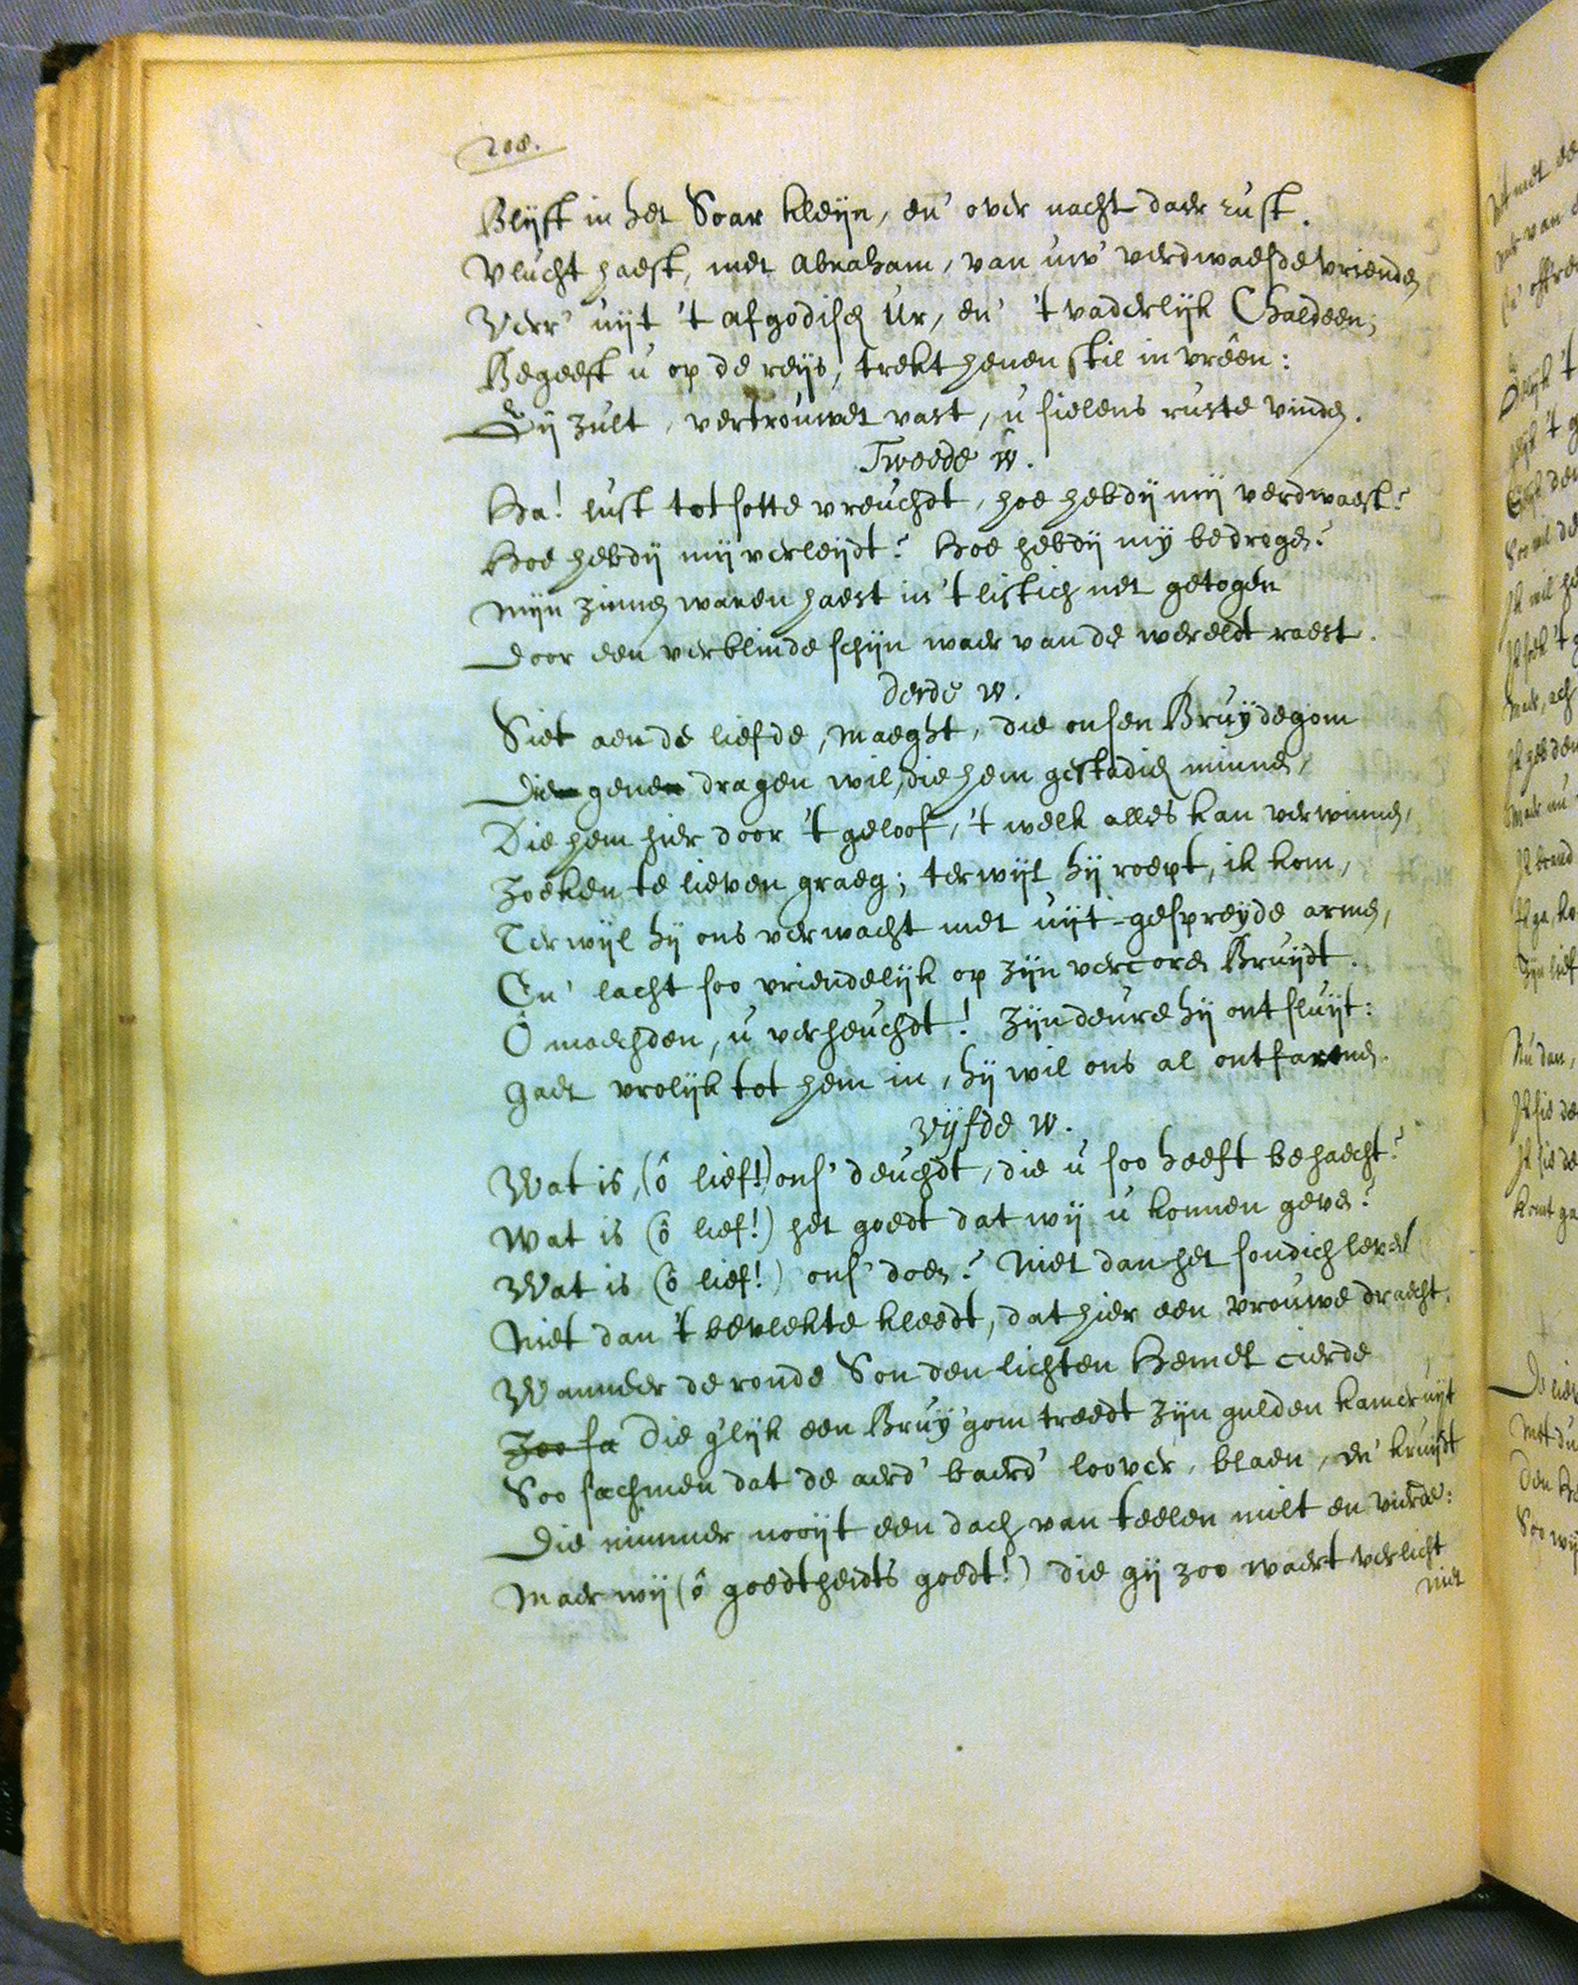 208.
Blijft in het Soar kleijn, en' over nacht daer rust.
Vlucht haest, met Abraham, van uw' verdwaesde vrienden
Verr' uijt 't afgodisch Ur, en' 't vaderlijk Chaldeen;
Begeeft u op de reijs, trekt henen stil in vrêen:
Gij zult, vertrouwet vast, u sielens ruste vinden.
Tweede w.
Ha! lust tot sotte vreuchdt, hoe hebdij mij verdwaest?
Hoe hebdij mij verleijdt? Hoe hebdij mÿ bedrogen?
Mijn zinnen waren haest in 't listich net getogen
Door een verblinde schijn waer van de wereldt raest.
derde w.
Siet aen de liefde, Maeght, die onsen Bruijdegom
Die gene dragen wil, die hem gestadich minnen,
Die hem hier door 't geloof, 't welk alles kan verwinnen,
Zoeken te lieven graeg; terwijl hij roept, ik kom,
Terwijl hij ons verwacht met uijt-gespreijde armen,
En' lacht soo vriendelijk op zijn vercoren Bruijdt.
Ô maechden, u verheuchdt! Zijn deure hij ontsluijt:
Gaet vrolijk tot hem in, hij wil ons al ontfarmen.
vijfde w.
Wat is, (ô lief!) ons' deuchdt, die u soo heeft behaecht?
Wat is (ô lief!) het goedt dat wij u konnen geven?
Wat is (ô lief!) ons' doen? Niet dan het sondich leven
Niet dan 't bevlekte kleedt, dat hier een vrouwe draecht.
Wanneer de ronde Son den lichten Hemel cierde
Zoo sa Die g'lijk een Bruÿ'gom treedt zijn gulden kamer uijt
Soo sachmen dat de aerd' baerd' loover, blaen, en' kruijdt
Die nimmer nooijt een dach van teelen milt en vierde:
Maer wij (ô goedtheidts goedt!) die gij zoo waert verlicht
niet